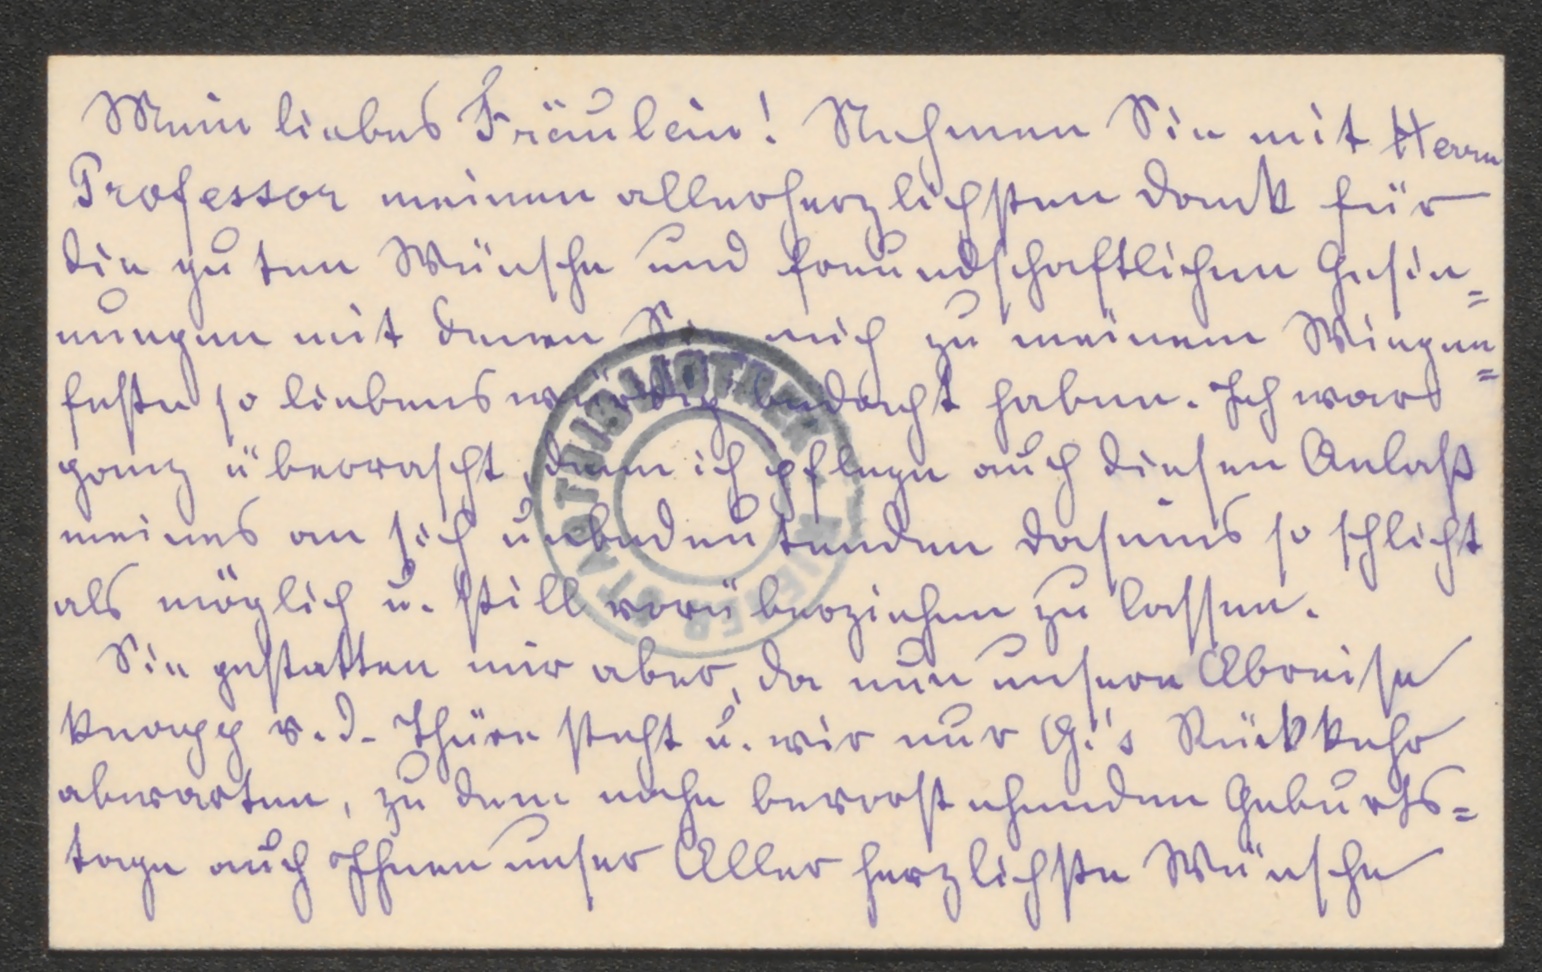 Mein liebes Fräulein! Nehmen Sie mit Herrn
Professor meinen allerherzlichsten Dank für
die guten Wünsche und freundschaftlichen Gesin=
nungen mit denen Sie mich zu meinem Wiegen=
feste so liebenswürdig bedacht haben. Ich war
ganz überrascht, denn ich pflege auch diesen Anlaß
meines an sich unbedeutenden Daseins so schlicht
als möglich u. still vorüberziehen zu lassen.
Sie gestatten mir aber, da nun unsere Abreise
knapp v. d. Thüre steht u. wir nur G.'s Rückkehr
abwarten, zu dem nahe bevorstehenden Geburts=
tage auch Ihnen unser Aller herzlichste Wünsche
STADTBIBLIOTHEK
WIENER